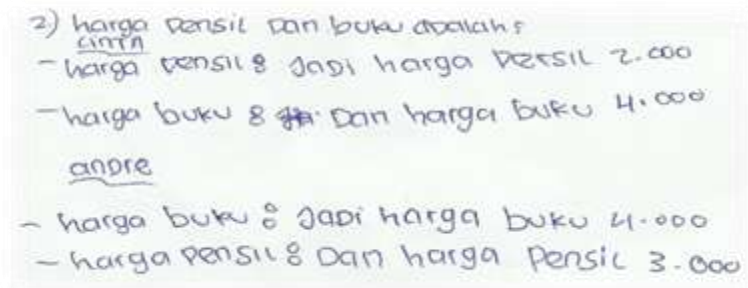 2) harga pensil dan buku adalah:
cinta
- harga pensil : Jadi harga pensil 2.000
- harga buku : Dan harga buku 4.000
andre
- harga buku : Jadi harga buku 4.000
- harga pensil : Dan harga Pensil 3.000